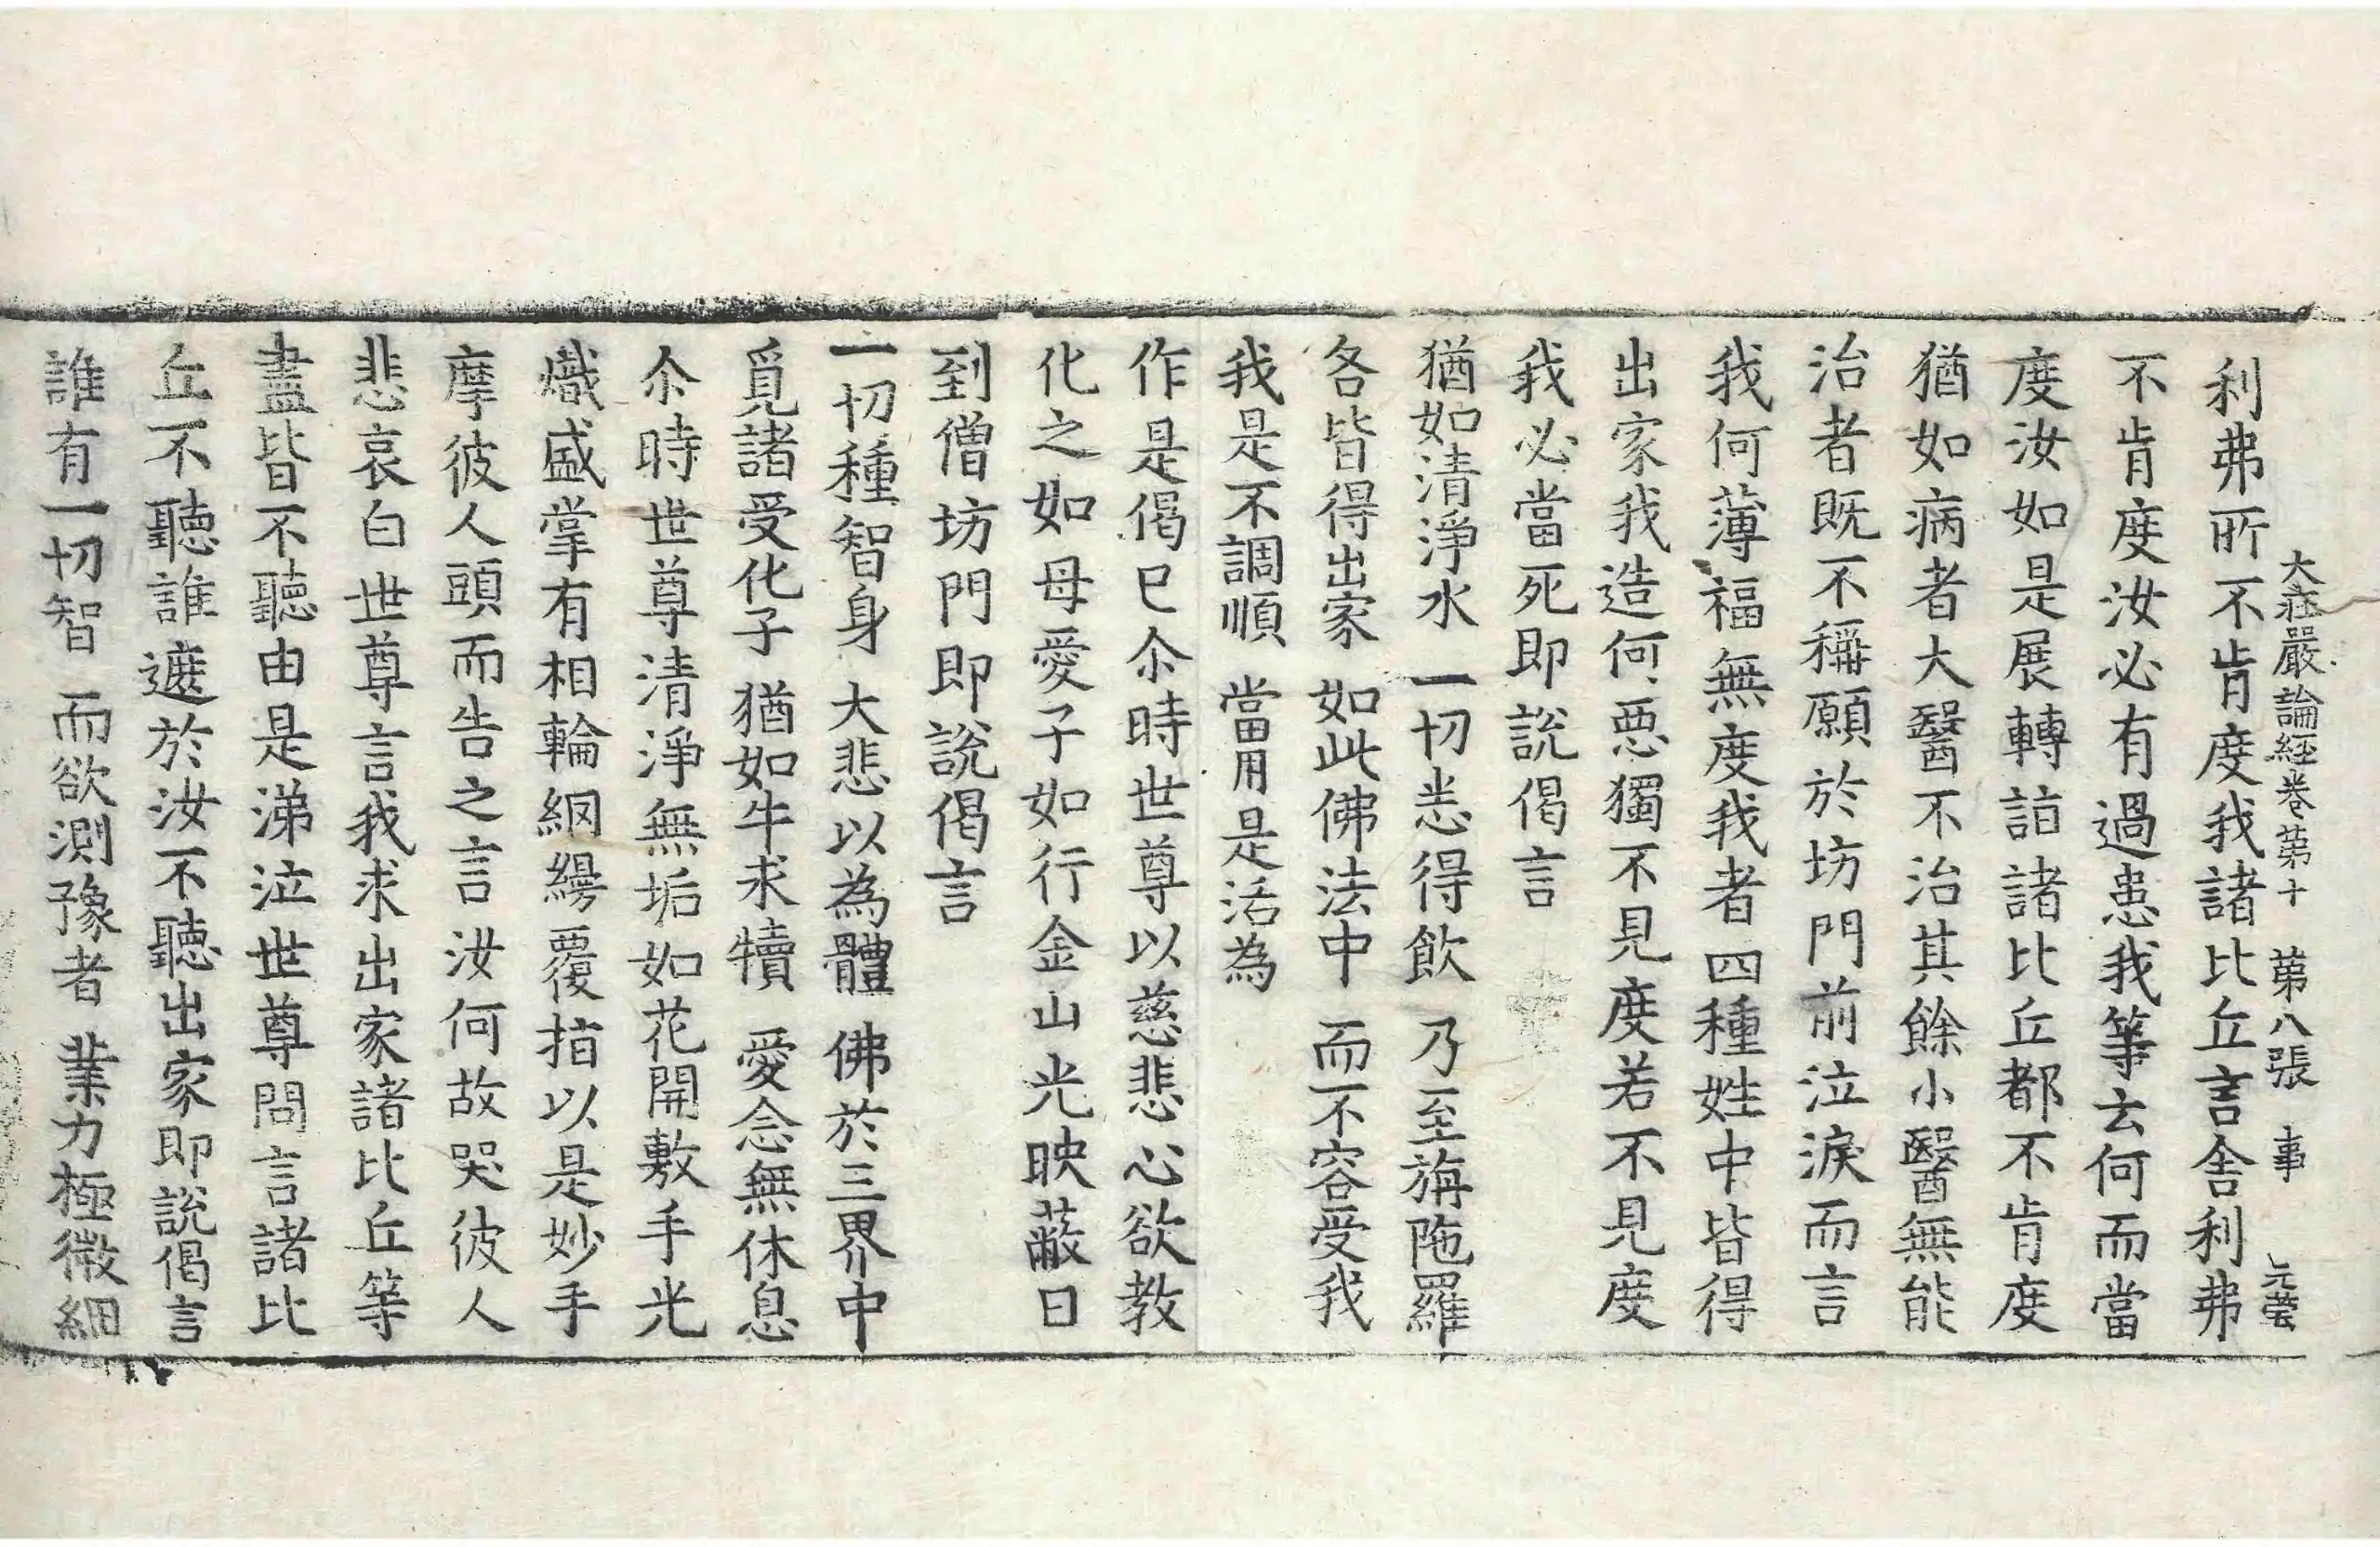 大莊嚴論經卷第十　第八張　事　元瑩
利弗所不肯度我諸比丘言舍利弗
不肯度汝必有過患我等云何而當
度汝如是展轉詣諸比丘都不肯度
猶如病者大醫不治其餘小醫無能
治者既不稱願於坊門前泣淚而言
我何薄福無度我者四種姓中皆得
出家我造何惡獨不見度若不見度
我必當死即說偈言
猶如清淨水　一切悉得飲　乃至旃陁羅
各皆得出家　如此佛法中　而不容受我
我是不調順　當用是活為
作是偈已尒時世尊以慈悲心欲教
化之如母愛子如行金山光映蔽日
到僧坊門即說偈言
一切種智身　大悲以為體　佛於三界中
覓諸受化子　猶如牛求犢　愛念無休息
尒時世尊清淨無垢如花開敷手光
熾盛掌有相輪網縵覆指以是妙手
摩彼人頭而告之言汝何故哭彼人
悲哀白世尊言我求出家諸比丘等
盡皆不聽由是涕泣世尊問言諸比
丘不聽誰遮於汝不聽出家即說偈言
誰有一切智　而欲測豫者　業力極微細